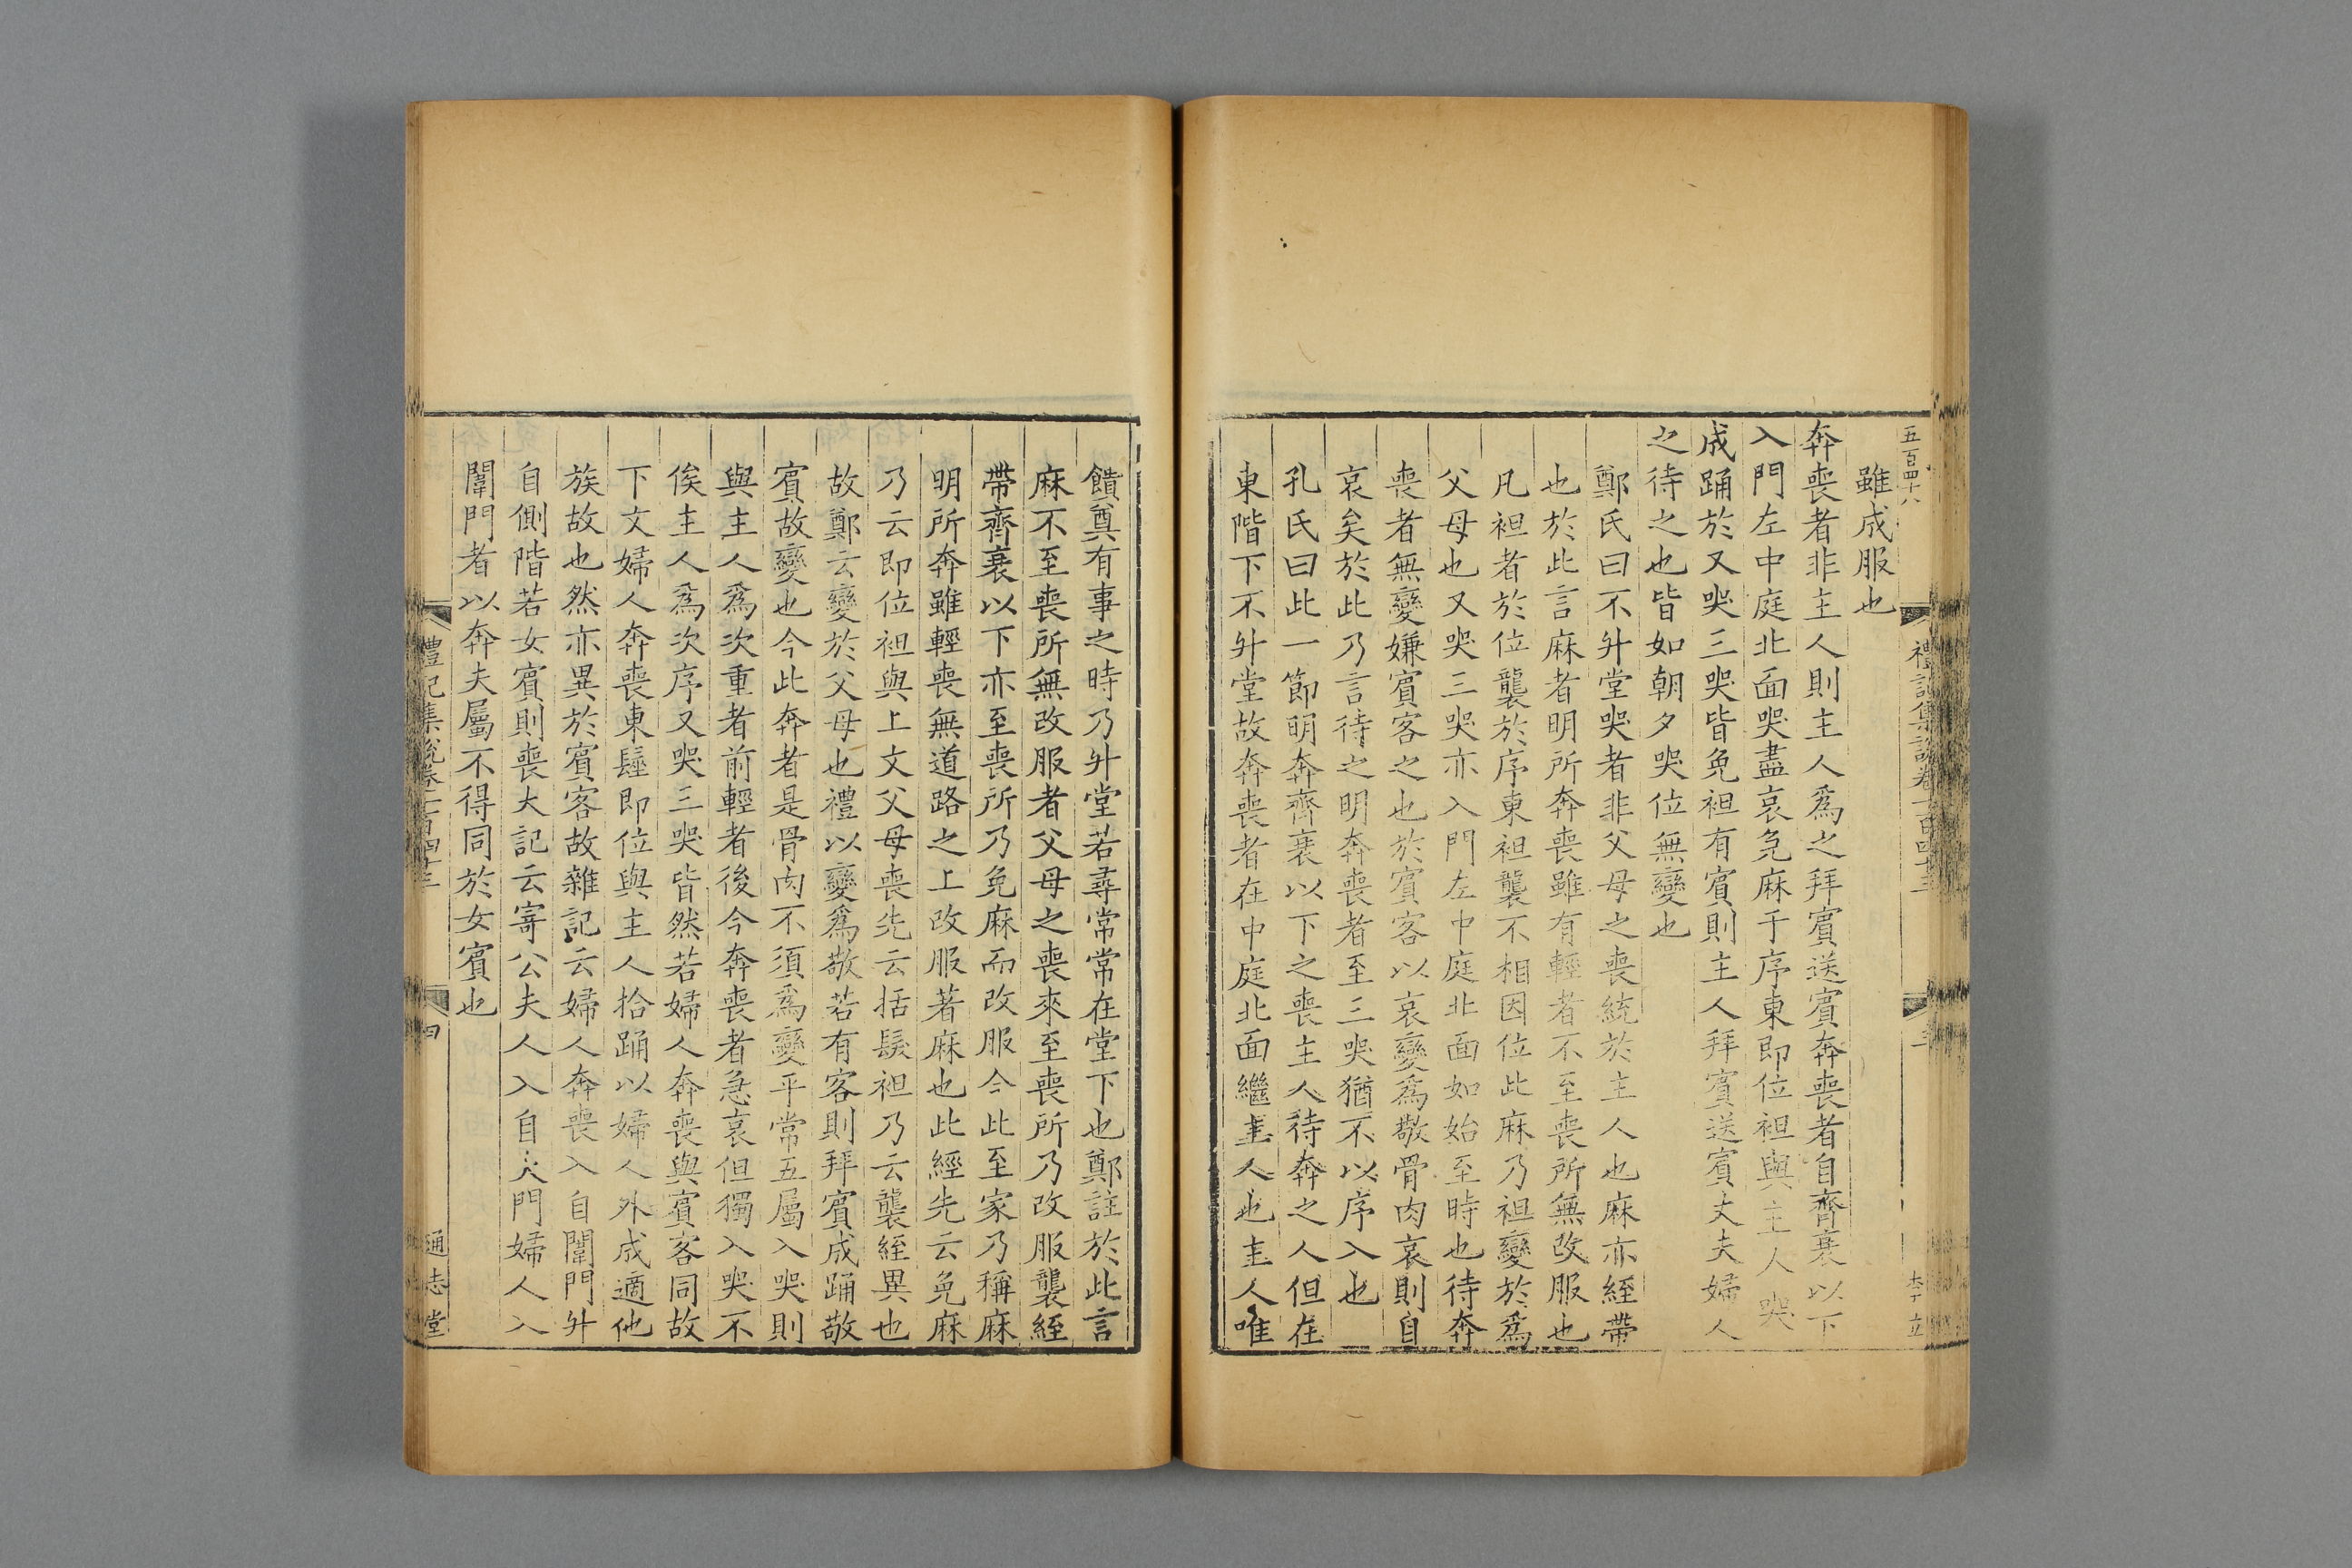 五百四十八
禮記集說卷一百四十三
三
李立
雖成服也
奔喪者非主人則主人爲之拜賓送賓奔喪者自齊衰以下
入門左中庭北面哭盡哀免麻于序東即位袒與主人哭
成踊於又哭三哭皆免袒有賓則主人拜賓送賓丈夫婦人
之待之也皆如朝夕哭位無變也
鄭氏曰不升堂哭者非父母之喪統於主人也麻亦絰帶
也於此言麻者明所奔喪雖有輕者不至喪所無改服也
凡袒者於位襲於序東袒襲不相因位此麻乃袒變於爲
父母也又哭三哭亦入門左中庭北面如始至時也待奔
喪者無變嫌賓客之也於賓客以哀變爲敬骨肉哀則自
哀矣於此乃言待之明奔喪者至三哭猶不以序入也
孔氏曰此一節明奔齊衰以下之喪主人待奔之人但在
東階下不升堂故奔喪者在中庭北面繼主人也主人唯
饋奠有事之時乃升堂若尋常常在堂下也鄭註於此言
麻不至喪所無改服者父母之喪來至喪所乃改服襲絰
帶齊衰以下亦至喪所乃免麻而改服今此至家乃稱麻
明所奔雖輕喪無道路之上改服著麻也此經先云免麻
乃云即位袒與上文父母喪先云括髮袒乃云襲絰異也
故鄭云變於父母也禮以變爲敬若有客則拜賓成踊敬
賓故變也今此奔者是骨肉不須爲變平常五屬入哭則
與主人爲次重者前輕者後今奔喪者急哀但獨入哭不
俟主人爲次序又哭三哭皆然若婦人奔喪與賓客同故
下文婦人奔喪東髽即位與主人拾踊以婦人外成適他
族故也然亦異於賓客故雜記云婦人奔喪入自闈門升
自側階若女賓則喪大記云寄公夫人入自大門婦人入
闈門者以奔夫屬不得同於女賓也
禮記集說卷一百四十三
四
通志堂